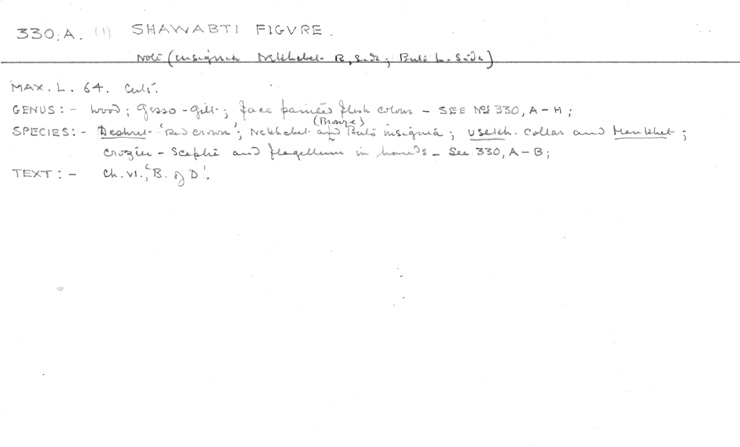 330, A. (1) SHAWABTI FIGVRE.
Note (insignia Nekhebet R. Side; Buto L. Side)
MAX. L. 64. Cents.
GENUS:- Wood; Gesso-Gilt; face painted flesh colour - SEE Nos 330, A-H;
(Bronze)
SPECIES:- Deshret-'Red crown'; Nekhebet and Buto insignia; Usekh. Collar and Mankhet;
Crozier-Sceptre and flagellum in hands - See 330, A-B;
TEXT:- Ch. VI., 'B. of D'.